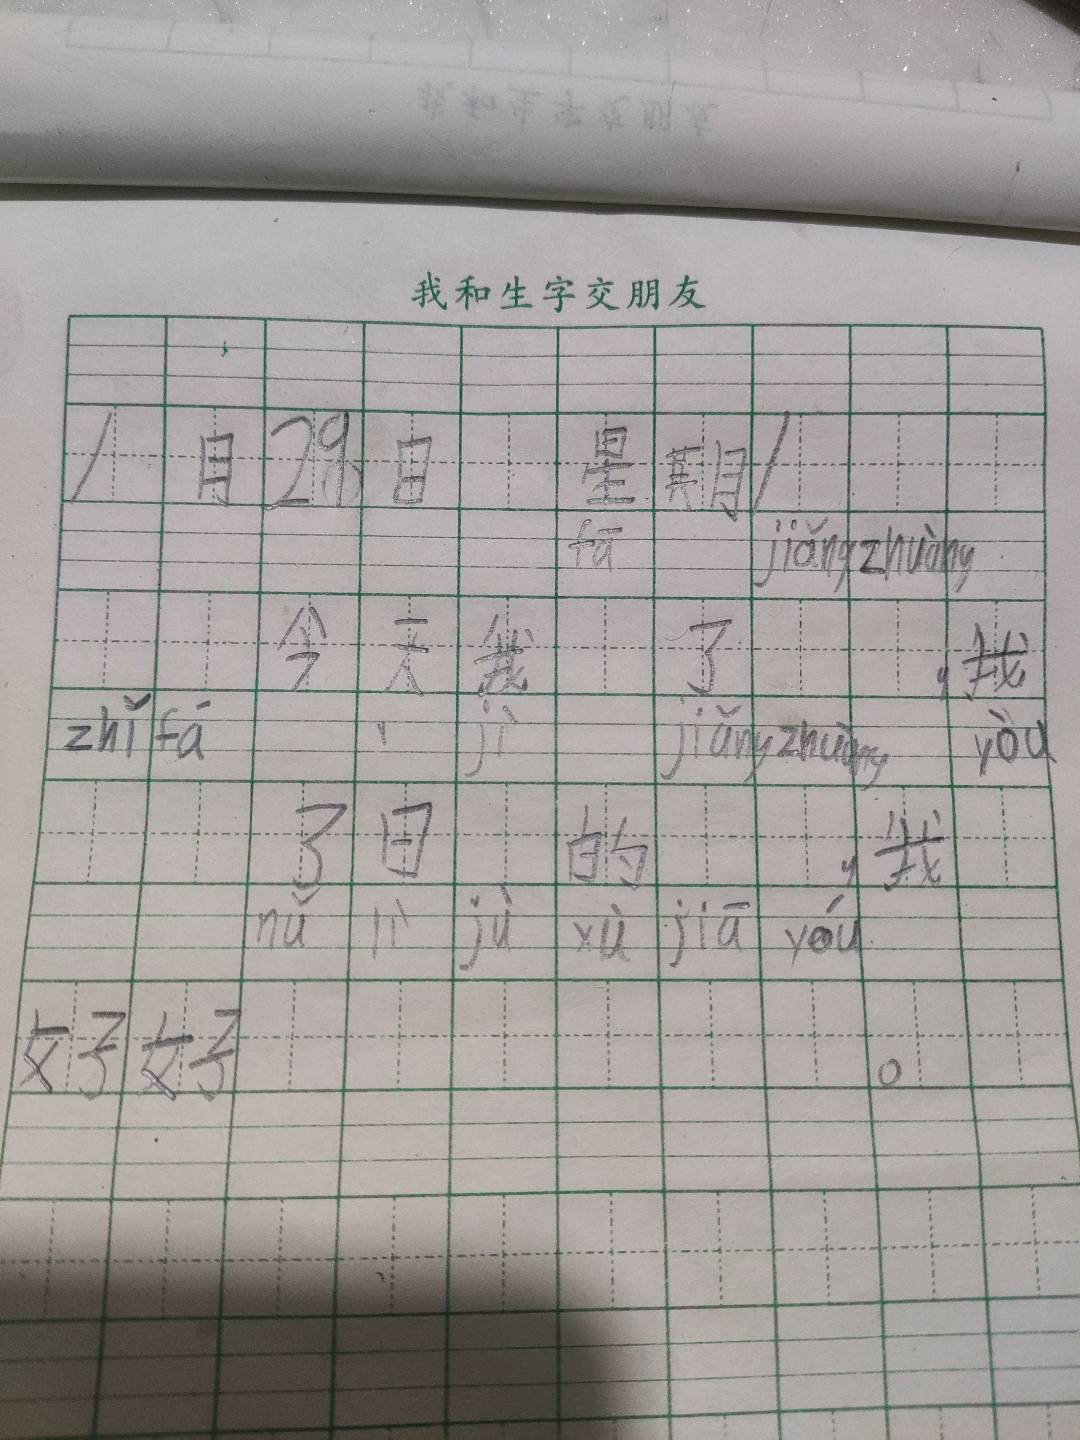 我和生字交朋友
1月29日 星期1
fā jiǎng zhuàng
今天我 了 ,我
zhǐ fá jì jiǎng zhuàng yòu
了日 的 ,我
nǔ lì jù xù jiā yóu
好好 。